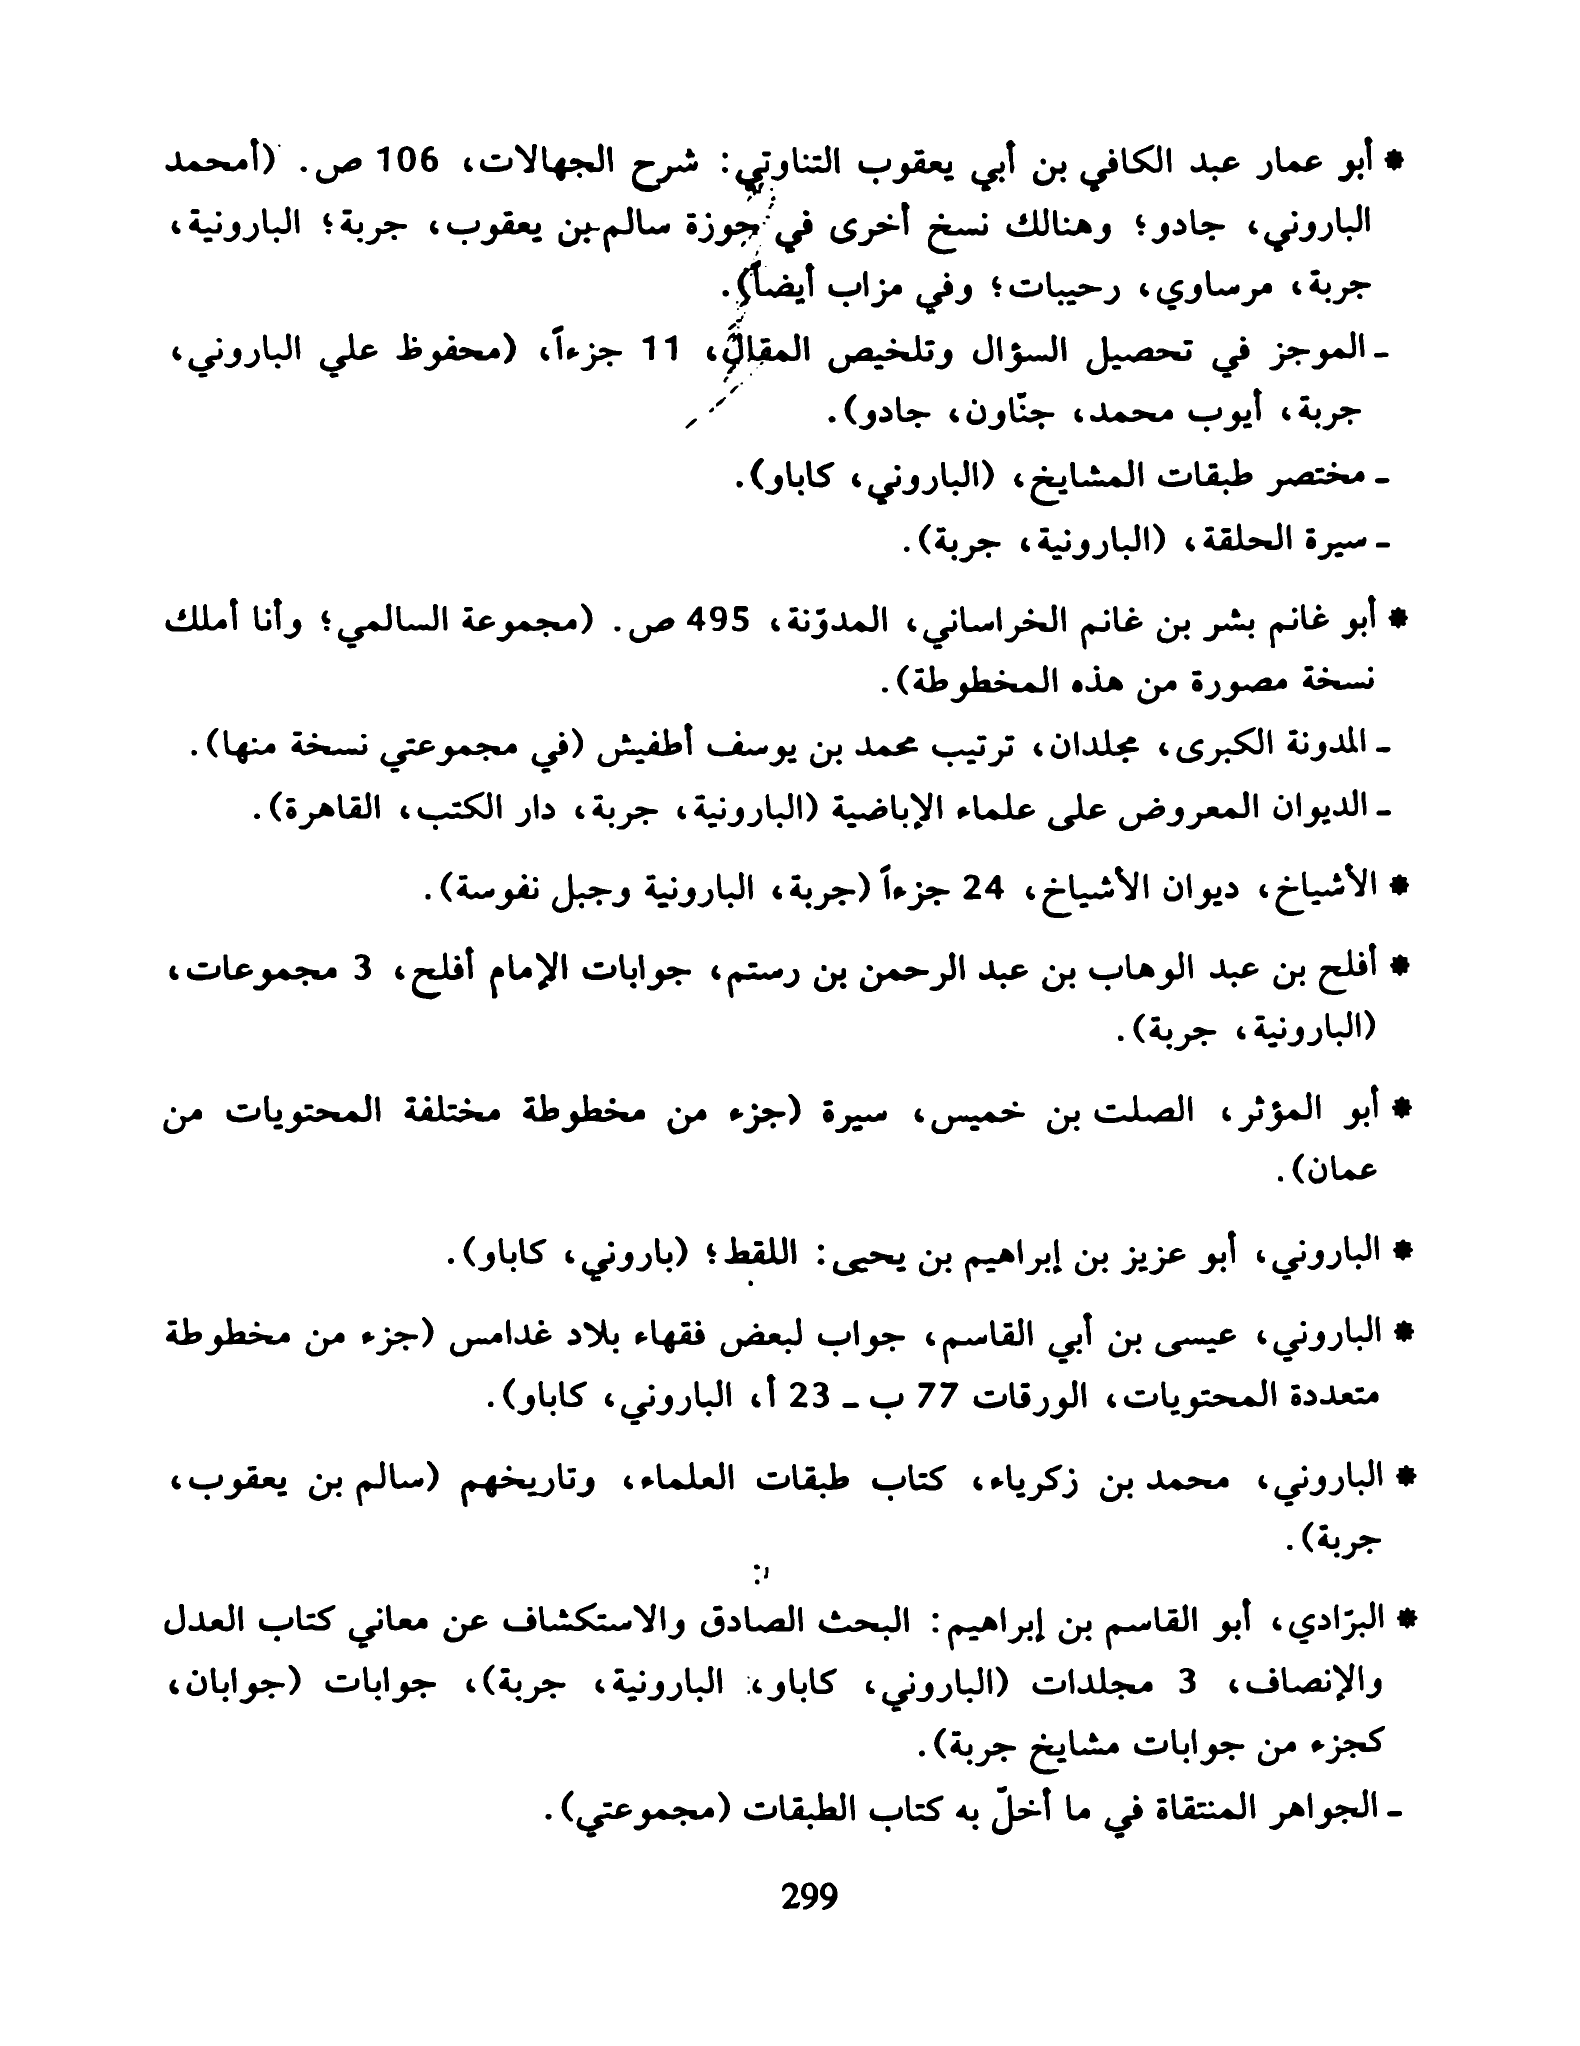 * أبو عمار عبد الكافي بن أبي يعقوب التناوتي: شرح الجهالات، 106 ص. (أمحمد
الباروني، جادو؛ وهنالك نسخ أخرى في حوزة سالم بن يعقوب، جربة؛ البارونية،
جربة، مرساوي، رحيبات؛ وفي مزاب أيضاً).
- الموجز في تحصيل السؤال وتلخيص المقال، 11 جزءاً، (محفوظ علي الباروني،
جربة، أيوب محمد، جنّاون، جادو).
- مختصر طبقات المشايخ، (الباروني، كاباو).
- سيرة الحلقة، (البارونية، جربة).
* أبو غانم بشر بن غانم الخراساني، المدوّنة، 495 ص. (مجموعة السالمي؛ وأنا أملك
نسخة مصورة من هذه المخطوطة).
- المدونة الكبرى، مجلدان، ترتيب محمد بن يوسف أطفيش (في مجموعتي نسخة منها).
- الديوان المعروض على علماء الإباضية (البارونية، جربة، دار الكتب، القاهرة).
* الأشياخ، ديوان الأشياخ، 24 جزءاً (جربة، البارونية وجبل نفوسة).
* أفلح بن عبد الوهاب بن عبد الرحمن بن رستم، جوابات الإمام أفلح، 3 مجموعات،
(البارونية، جربة).
* أبو المؤثر، الصلت بن خميس، سيرة (جزء من مخطوطة مختلفة المحتويات من
عمان).
* الباروني، أبو عزيز بن إبراهيم بن يحيى: اللقط؛ (باروني، كاباو).
* الباروني، عيسى بن أبي القاسم، جواب لبعض فقهاء بلاد غدامس (جزء من مخطوطة
متعددة المحتويات، الورقات 77 ب - 23 أ، الباروني، كاباو).
* الباروني، محمد بن زكرياء، كتاب طبقات العلماء، وتاريخهم (سالم بن يعقوب،
جربة).
* البرّادي، أبو القاسم بن إبراهيم: البحث الصادق والاستكشاف عن معاني كتاب العدل
والإنصاف، 3 مجلدات (الباروني، كاباو، البارونية، جربة)، جوابات (جوابان،
كجزء من جوابات مشايخ جربة).
- الجواهر المنتقاة في ما أخلّ به كتاب الطبقات (مجموعتي).
299